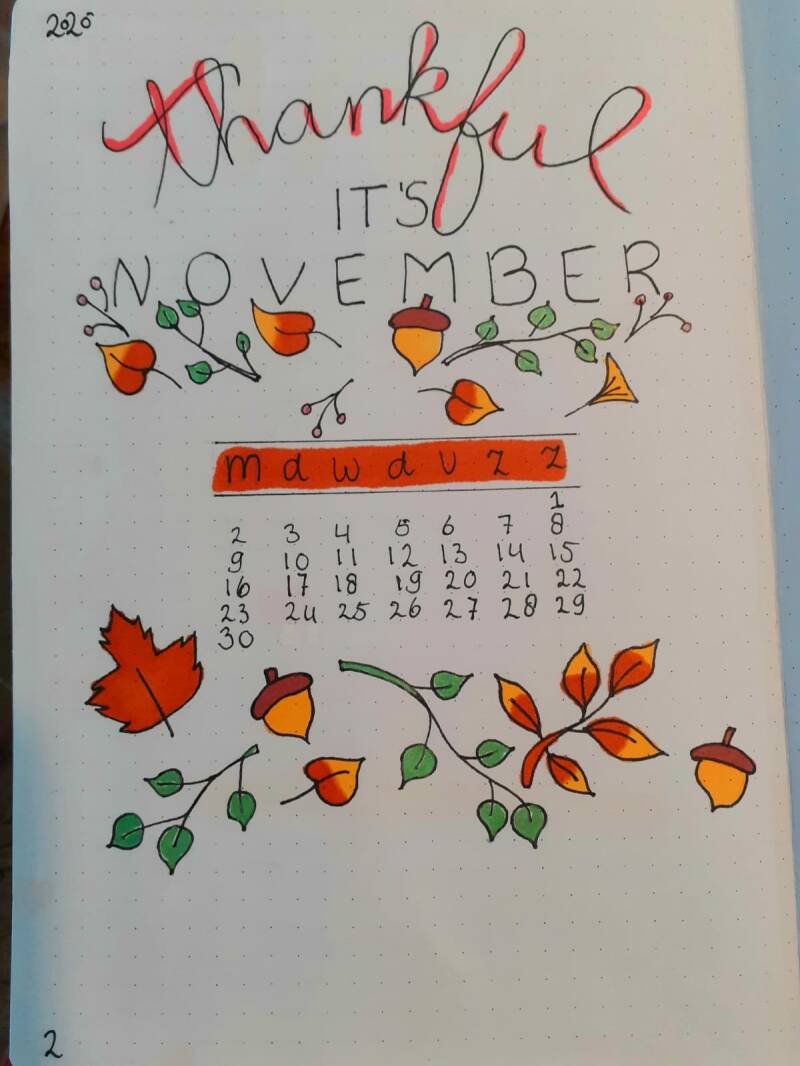 2020
thankful
IT'S
NOVEMBER
m d w d v z z
1
2 3 4 5 6 7 8
9 10 11 12 13 14 15
16 17 18 19 20 21 22
23 24 25 26 27 28 29
30
2